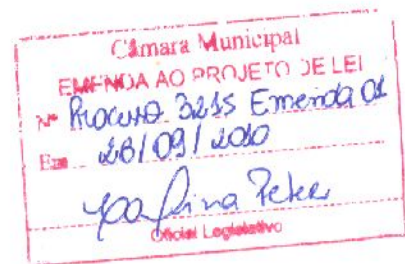 Câmara Municipal
EMENDA AO PROJETO DE LEI
Nº Processo 3215 Emenda 01
Em 28/09/2010
Peter
Oficial Legislativo